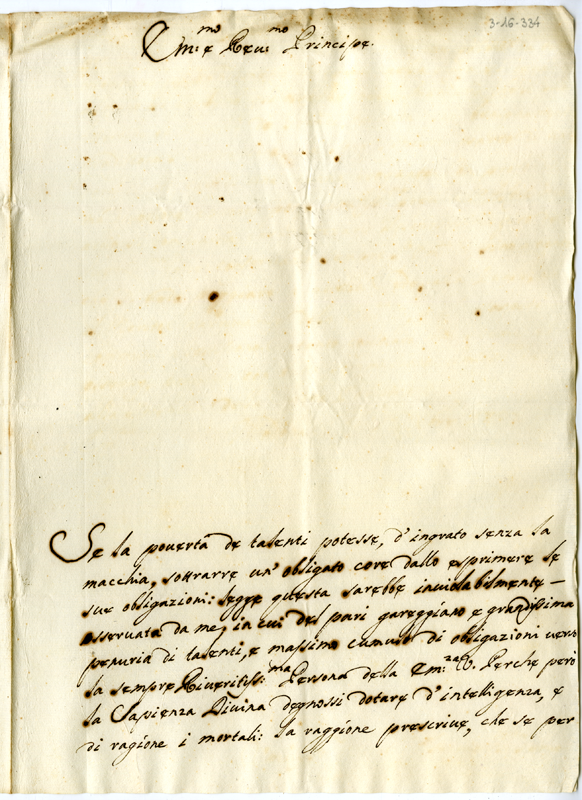 3-16-334
Em.mo e Reu.mo Principe.
Se la pouertà de talenti potesse, d'ingrato senza la
macchia, sottrarre un' obligato core dallo esprimere le
sue obligazioni: legge questa sarebbe inuiolabilmente
osseruata da me, in cui del pari gareggiano e grandissima
penuria di talenti, e massimo cumulo di obligazioni uerso
la sempre Riueritiss:ma Persona della Em:za V. Perche però
la Sapienza Diuina degnossi dotare d'intelligenza, e
di ragione i mortali: la raggione prescriue, che se per